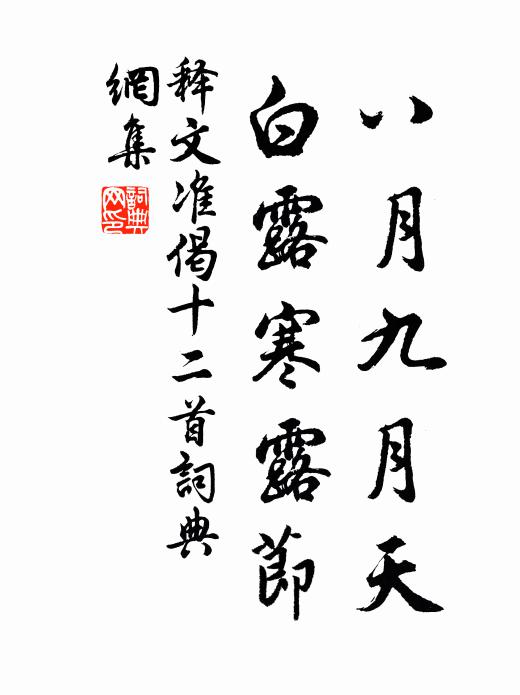 八月九月天
白露寒露節
释文准偈十二首詞典
網集
詞典網印